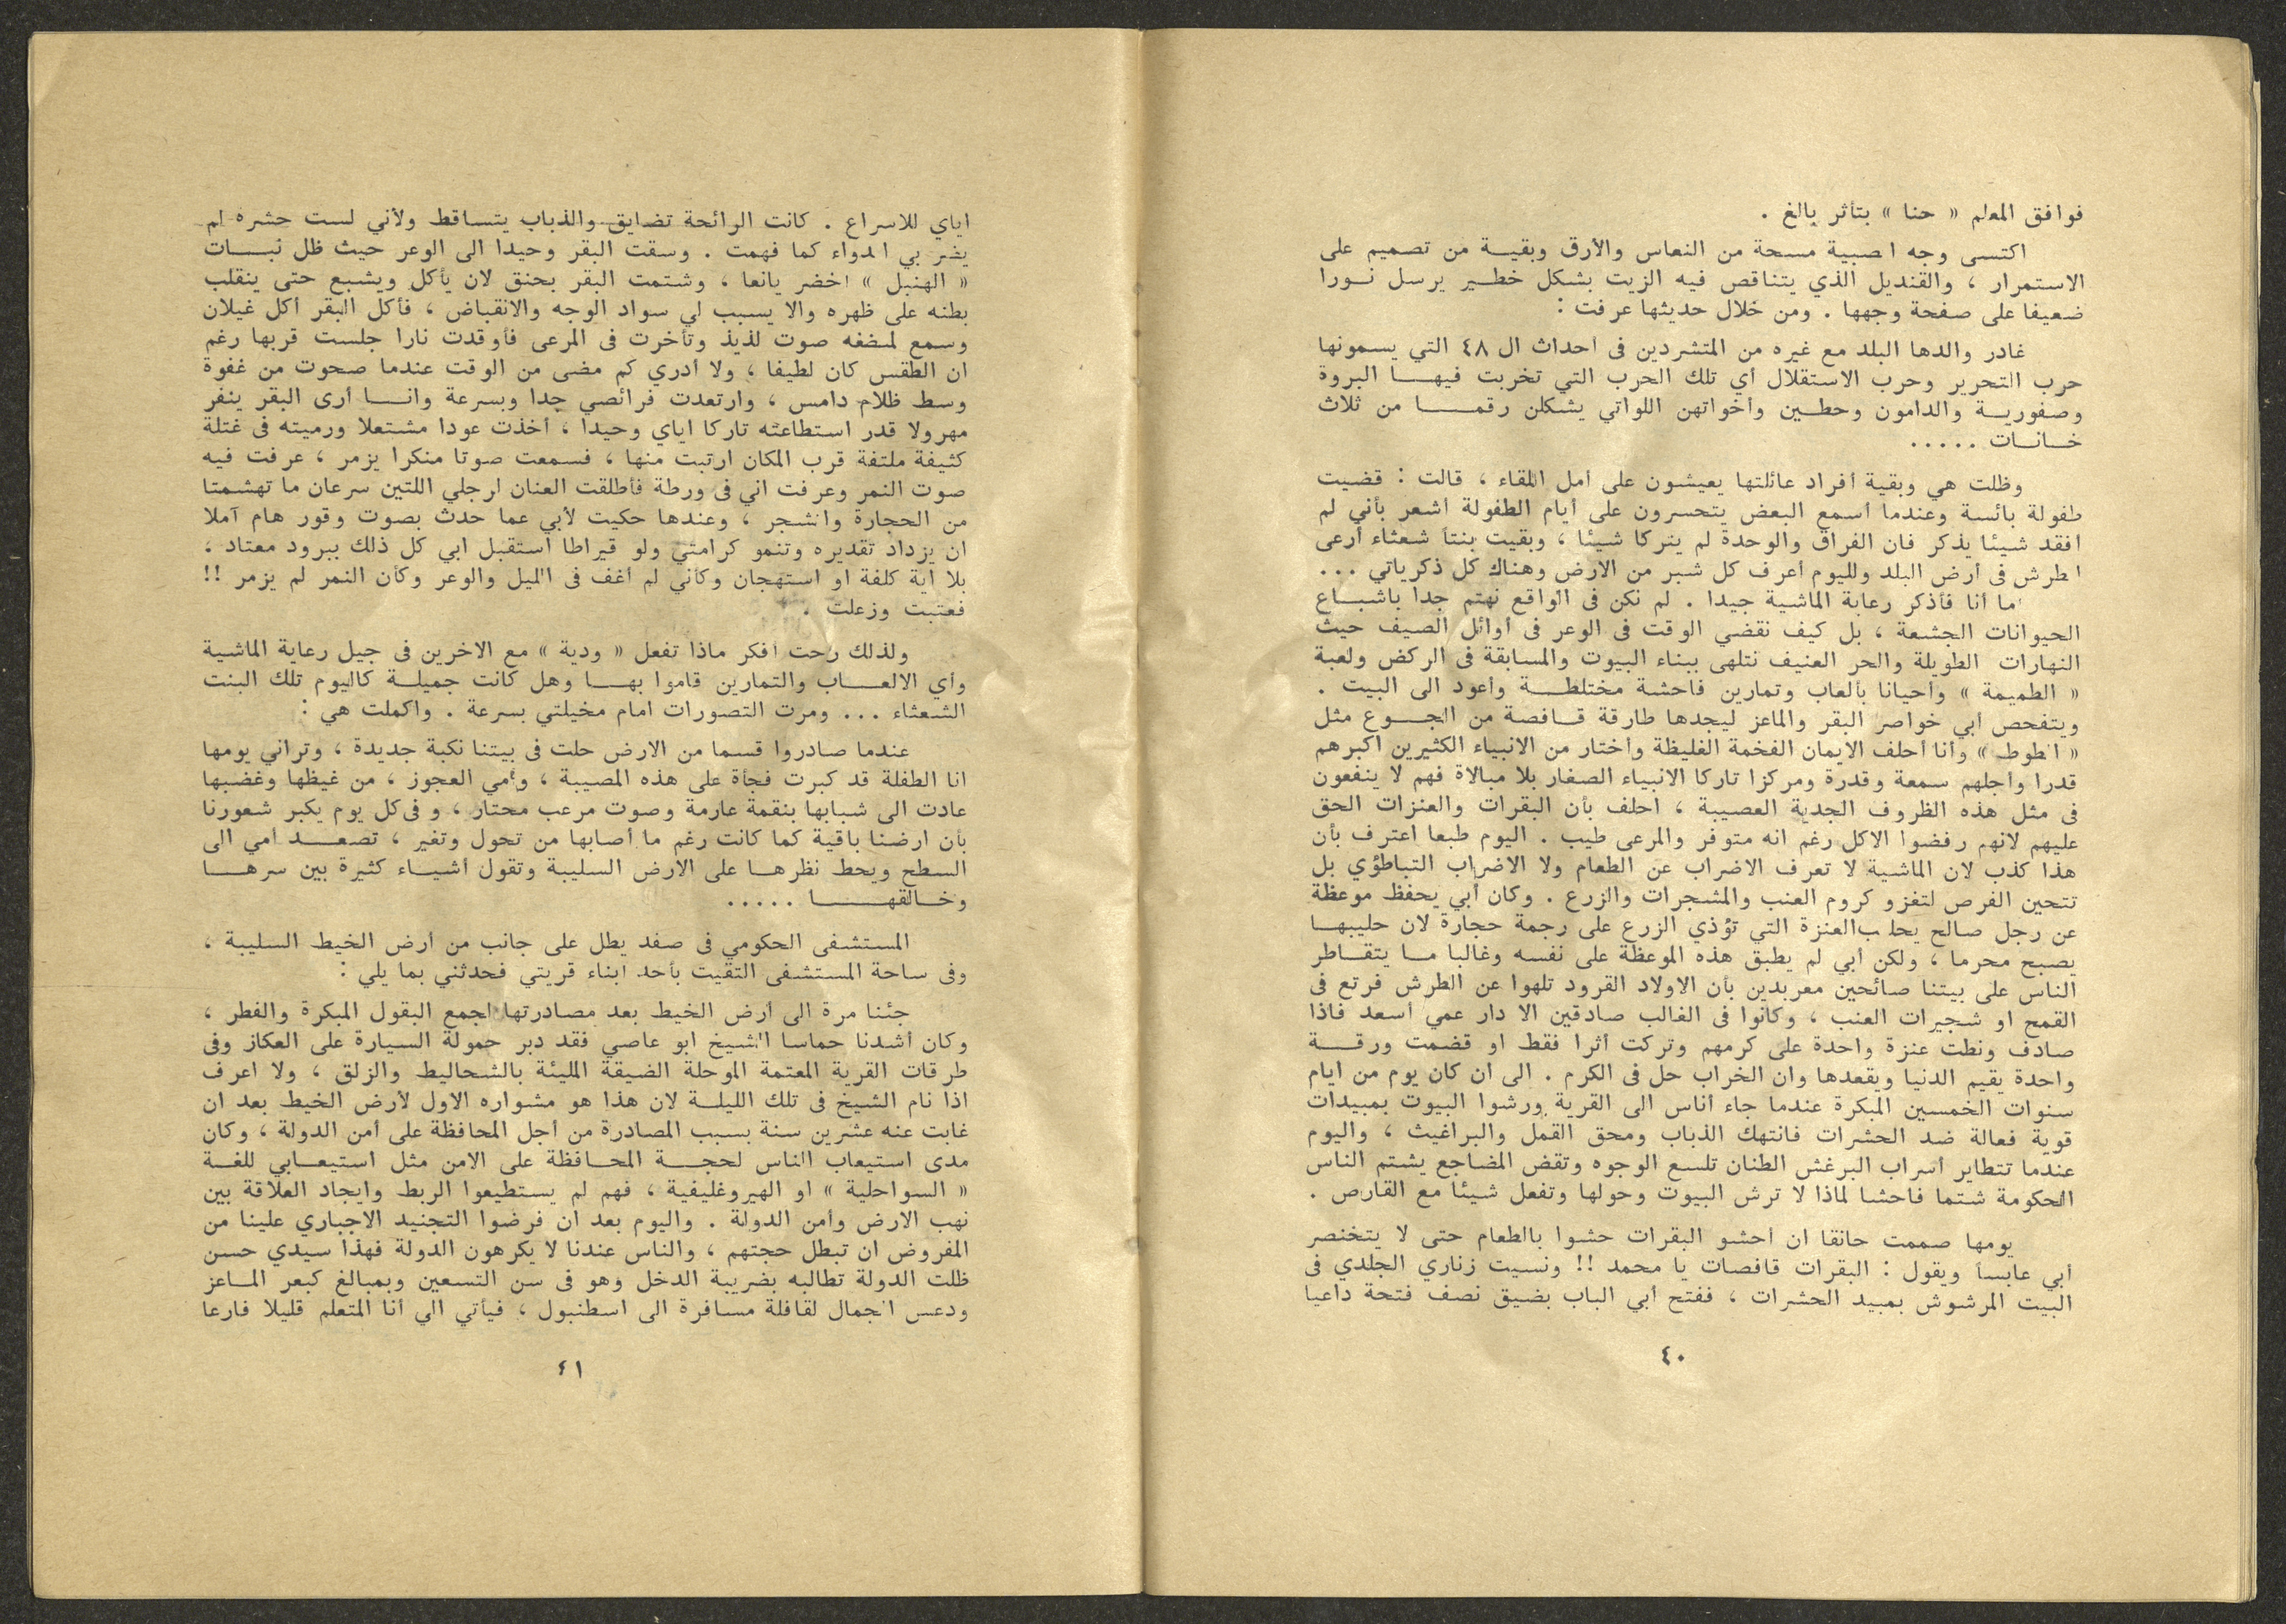 فوافق المعلم « حنا » بتأثر بالغ .
اكتسى وجه الصبية مسحة من النعاس والأرق وبقية من تصميم على
الاستمرار ، والقنديل الذي يتناقص فيه الزيت بشكل خطير يرسل نورا
ضعيفا على صفحة وجهها . ومن خلال حديثها عرفت :
غادر والدها البلد مع غيره من المتشردين فى احداث ال ٤٨ التي يسمونها
حرب التحرير وحرب الاستقلال أي تلك الحرب التي تخربت فيها البروة
وصفورية والدامون وحطين وأخواتهن اللواتي يشكلن رقما من ثلاث
خانات .....
وظلت هي وبقية أفراد عائلتها يعيشون على أمل اللقاء ، قالت : قضيت
طفولة بائسة وعندما أسمع البعض يتحسرون على أيام الطفولة أشعر بأني لم
افقد شيئا يذكر فان الفراق والوحدة لم يتركا شيئا ، وبقيت بنتاً شعثاء أرعى
الطرش فى أرض البلد ولليوم أعرف كل شبر من الارض وهناك كل ذكرياتي ...
اما أنا فأذكر رعاية الماشية جيدا . لم نكن فى الواقع نهتم جدا باشباع
الحيوانات الجشعة ، بل كيف نقضي الوقت فى الوعر فى أوائل الصيف حيث
النهارات الطويلة والحر العنيف نتلهى ببناء البيوت والمسابقة فى الركض ولعبة
« الطميمة » وأحيانا بألعاب وتمارين فاحشة مختلطة وأعود الى البيت .
ويتفحص ابي خواصر البقر والماعز ليجدها طارقة قافصة من الجوع مثل
« الطوط » وأنا أحلف الايمان الفخمة الغليظة وأختار من الانبياء الكثيرين اكبرهم
قدرا وأجلهم سمعة وقدرة ومركزا تاركا الانبياء الصغار بلا مبالاة فهم لا ينفعون
فى مثل هذه الظروف الجدية العصيبة ، احلف بأن البقرات والعنزات الحق
عليهم لانهم رفضوا الاكل رغم انه متوفر والمرعى طيب . اليوم طبعا اعترف بأن
هذا كذب لان الماشية لا تعرف الاضراب عن الطعام ولا الاضراب التباطؤي بل
تتحين الفرص لتغزو كروم العنب والمشجرات والزرع . وكان أبي يحفظ موعظة
عن رجل صالح يحلب العنزة التي تؤذي الزرع على رجمة حجارة لان حليبها
يصبح محرما ، ولكن أبي لم يطبق هذه الموعظة على نفسه وغالبا ما يتقاطر
الناس على بيتنا صائحين معربدين بأن الاولاد القرود تلهوا عن الطرش فرتع فى
القمح او شجيرات العنب ، وكانوا فى الغالب صادقين الا دار عمي أسعد فاذا
صادف ونطت عنزة واحدة على كرمهم وتركت أثرا فقط او قضمت ورقة
واحدة يقيم الدنيا ويقعدها وان الخراب حل فى الكرم . الى ان كان يوم من ايام
سنوات الخمسين المبكرة عندما جاء أناس الى القرية ورشوا البيوت بمبيدات
قوية فعالة ضد الحشرات فانتهك الذباب ومحق القمل والبراغيث ، واليوم
عندما تتطاير أسراب البرغش الطنان تلسع الوجوه وتقض المضاجع يشتم الناس
الحكومة شتما فاحشا لماذا لا ترش البيوت وحولها وتفعل شيئا مع القارص .
يومها صممت حانقا ان احشو البقرات حشوا بالطعام حتى لا يتخنصر
أبي عابساً ويقول : البقرات قافصات يا محمد !! ونسيت زناري الجلدي فى
البيت المرشوش بمبيد الحشرات ، ففتح أبي الباب بضيق نصف فتحة داعيا
٤٠
اياي للاسراع . كانت الرائحة تضايق والذباب يتساقط ولأني لست حشره لم
يضر بي الدواء كما فهمت . وسقت البقر وحيدا الى الوعر حيث ظل نبات
« الهنبل » اخضر يانعا ، وشتمت البقر بحنق لان يأكل ويشبع حتى ينقلب
بطنه على ظهره والا يسبب لي سواد الوجه والانقباض ، فأكل البقر أكل غيلان
وسمع لمضغه صوت لذيذ وتأخرت فى المرعى فأوقدت نارا جلست قربها رغم
ان الطقس كان لطيفا ، ولا أدري كم مضى من الوقت عندما صحوت من غفوة
وسط ظلام دامس ، وارتعدت فرائصي جدا وبسرعة وانا أرى البقر ينفر
مهرولا قدر استطاعته تاركا اياي وحيدا ، أخذت عودا مشتعلا ورميته فى غتلة
كثيفة ملتفة قرب المكان ارتبت منها ، فسمعت صوتا منكرا يزمر ، عرفت فيه
صوت النمر وعرفت اني فى ورطة فأطلقت العنان لرجلي اللتين سرعان ما تهشمتا
من الحجارة والشجر ، وعندها حكيت لأبي عما حدث بصوت وقور هام آملا
ان يزداد تقديره وتنمو كرامتي ولو قيراطا استقبل ابي كل ذلك ببرود معتاد ،
بلا أية كلفة او استهجان وكأني لم أغف فى الليل والوعر وكأن النمر لم يزمر !!
فعتبت وزعلت .
ولذلك رحت افكر ماذا تفعل « ودية » مع الاخرين فى جيل رعاية الماشية
وأي الالعاب والتمارين قاموا بها وهل كانت جميلة كاليوم تلك البنت
الشعثاء ... ومرت التصورات امام مخيلتي بسرعة . واكملت هي :
عندما صادروا قسما من الارض حلت فى بيتنا نكبة جديدة ، وتراني يومها
انا الطفلة قد كبرت فجأة على هذه المصيبة ، وأمي العجوز ، من غيظها وغضبها
عادت الى شبابها بنقمة عارمة وصوت مرعب محتار ، و فى كل يوم يكبر شعورنا
بأن ارضنا باقية كما كانت رغم ما أصابها من تحول وتغير ، تصعد امي الى
السطح ويحط نظرها على الارض السليبة وتقول أشياء كثيرة بين سرها
وخالقها .....
المستشفى الحكومي فى صفد يطل على جانب من أرض الخيط السليبة ،
وفى ساحة المستشفى التقيت بأحد ابناء قريتي فحدثني بما يلي :
جئنا مرة الى أرض الخيط بعد مصادرتها لجمع البقول المبكرة والفطر ،
وكان أشدنا حماسا الشيخ ابو عاصي فقد دبر حمولة السيارة على العكاز وفى
طرقات القرية المعتمة الموحلة الضيقة المليئة بالشحاليط والزلق ، ولا اعرف
اذا نام الشيخ فى تلك الليلة لان هذا هو مشواره الاول لأرض الخيط بعد ان
غابت عنه عشرين سنة بسبب المصادرة من أجل المحافظة على أمن الدولة ، وكان
مدى استيعاب الناس لحجة المحافظة على الامن مثل استيعابي للغة
« السواحلية » او الهيروغليفية ، فهم لم يستطيعوا الربط وايجاد العلاقة بين
نهب الارض وأمن الدولة . واليوم بعد ان فرضوا التجنيد الاجباري علينا من
المفروض ان تبطل حجتهم ، والناس عندنا لا يكرهون الدولة فهذا سيدي حسن
ظلت الدولة تطالبه بضريبة الدخل وهو فى سن التسعين وبمبالغ كبعر الماعز
ودعس الجمال لقافلة مسافرة الى اسطنبول ، فيأتي الي أنا المتعلم قليلا فارعا
٤١